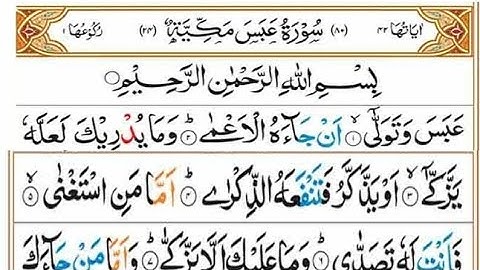 اٰيَاتُهَا ٤٢ (٨٠) سُوْرَةُ عَبَسَ مَكِّيَّةٌ (٢٤) رُكُوْعُهَا ١
بِسْمِ اللّٰهِ الرَّحْمٰنِ الرَّحِيْمِ
عَبَسَ وَتَوَلّٰىٓ ۙ١ اَنْ جَآءَهُ الْاَعْمٰى ؕ٢ وَمَا يُدْرِيْكَ لَعَلَّهٗ
يَزَّكّٰىٓ ۙ٣ اَوْ يَذَّكَّرُ فَتَنْفَعَهُ الذِّكْرٰى ؕ٤ اَمَّا مَنِ اسْتَغْنٰى ۙ٥
فَاَنْتَ لَهٗ تَصَدّٰى ؕ٦ وَمَا عَلَيْكَ اَلَّا يَزَّكّٰى ؕ٧ وَاَمَّا مَنْ جَآءَكَ